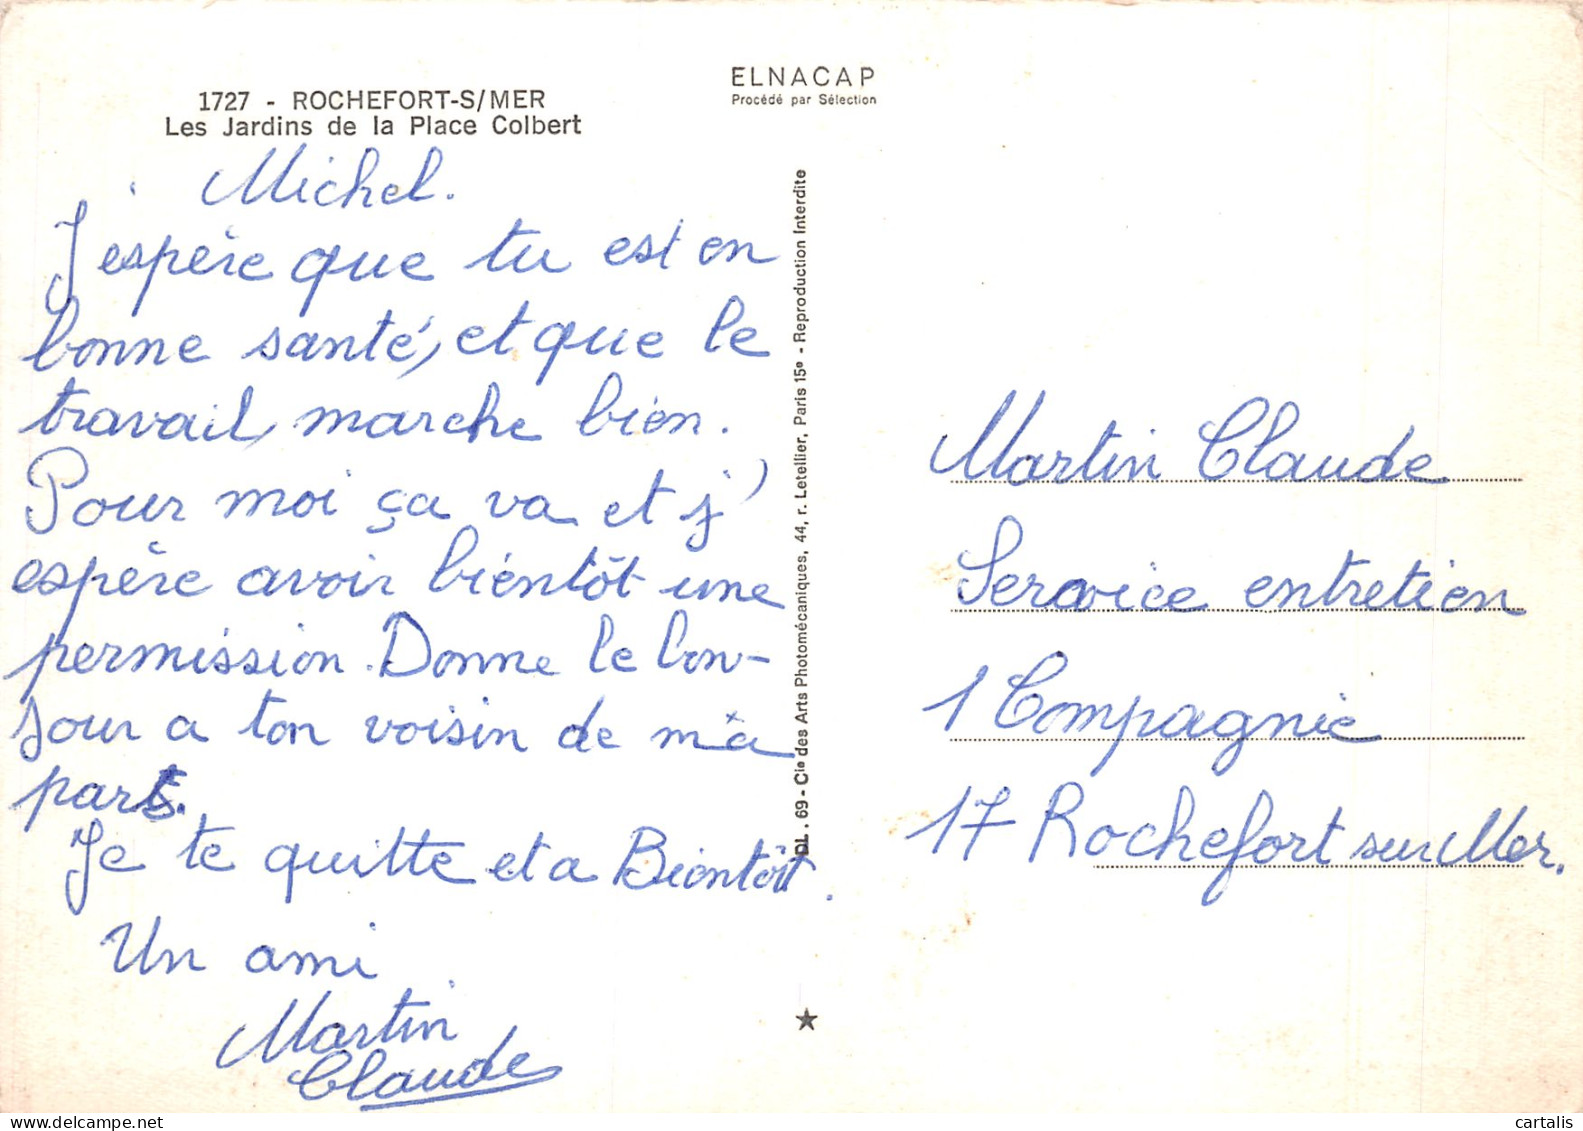 1727 - ROCHEFORT-S/MER
Les Jardins de la Place Colbert
ELNACAP
Procédé par Sélection
Michel.
J'espère que tu est en
bonne santé, et que le
travail marche bien.
Pour moi ça va et j'
espère avoir bientôt une
permission. Donne le bon-
jour a ton voisin de ma
part.
Je te quitte et a Bientôt.
Un ami
Martin
Claude
DL. 69 - Cie des Arts Photomécaniques, 44, r. Letellier, Paris 15e - Reproduction Interdite
Martin Claude
Service entretien
1 Compagnie
17 Rochefort sur Mer.
cartalis